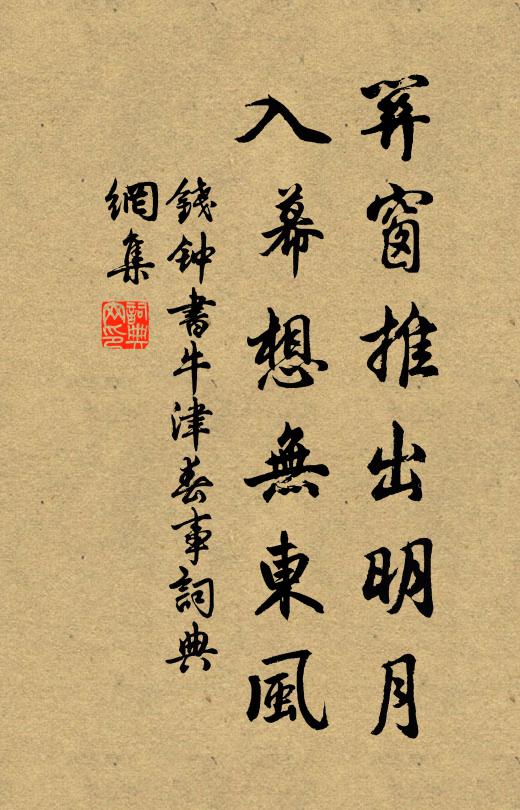 窗推出明月
入幕想無東風
錢钟書牛津春事詞典
網集
詞典
网印